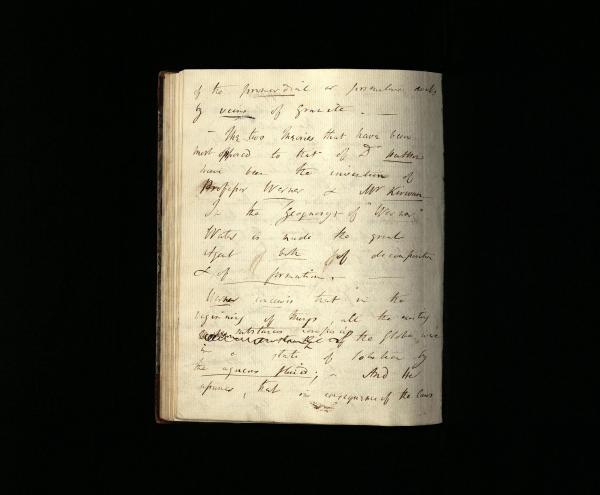 of the primordial or primitive rocks
by veins of Granite. —
— The two theories that have been
most opposed to that of Dr Hutton
have been the invention of
Professor Werner & Mr Kirwan
In the "Geognosy" of "Werner"
Water is made the great
Agent both of decomposition
& of formation. —
Werner conceives that in the
beginning of things, all the existing
substances composing of the Globe were
in a state of solution by
the aqueous fluid; — And he
supposes, that in consequence of the laws